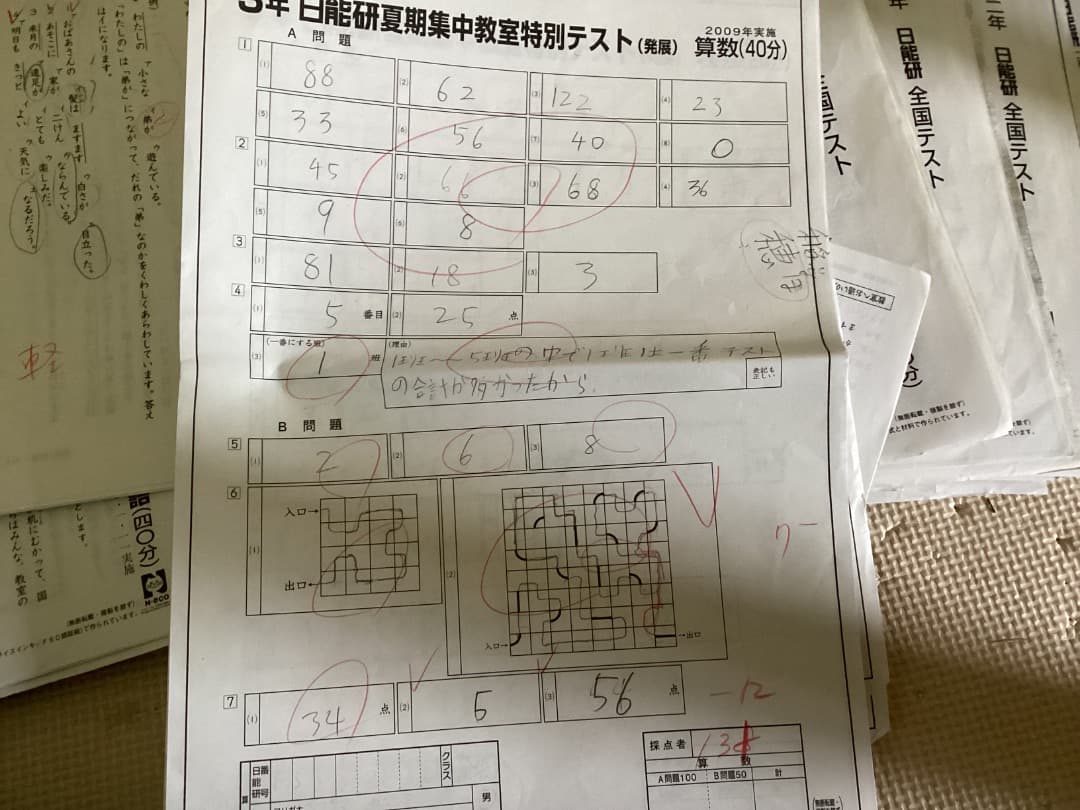 3年 日能研夏期集中教室特別テスト(発展) 2009年実施 算数(40分)
A 問題
1
(1) 88 (2) 62 (3) 122 (4) 23
(5) 33 (6) 56 (7) 40 (8) 0
2
(1) 45 (2) 66 (3) 68 (4) 36
(5) 9 (6) 8
3
(1) 81 (2) 18 (3) 3
4
(1) 5 番目 (2) 25 点
(3) (一番にする班) 1 班 (理由)
の合計が多かったから.
表記も正しい
B 問題
5
(1) 2 (2) 6 (3) 8
6
(1) 入口→
出口←
(2)
入口→ →出口
7
(1) 34 点 (2) 5 (3) 56 点
-12
採点者
算 数
A問題100 B問題50 計
日能研 番号
クラス
男
年 日能研 全国テスト
二年 日能研 全国テスト
全国テスト
教室へお通いの
(無断転載・複製を禁ず)
わたしの 小さな 弟が 遊んでいる。
「わたしの」は「弟が」につながって、だれの「弟」なのかをくわしくあらわしています。答え
はイになります。
おばあさんの 髪は ますます 白さが 目立った。
あそこに 家が 二けん ならんでいる。
来月の 遠足が とても 楽しみだ。
明日も きっと よい 天気に なるだろう。
軽
語(四〇分)
実施
N-ECO
(無断転載・複製を禁ず)